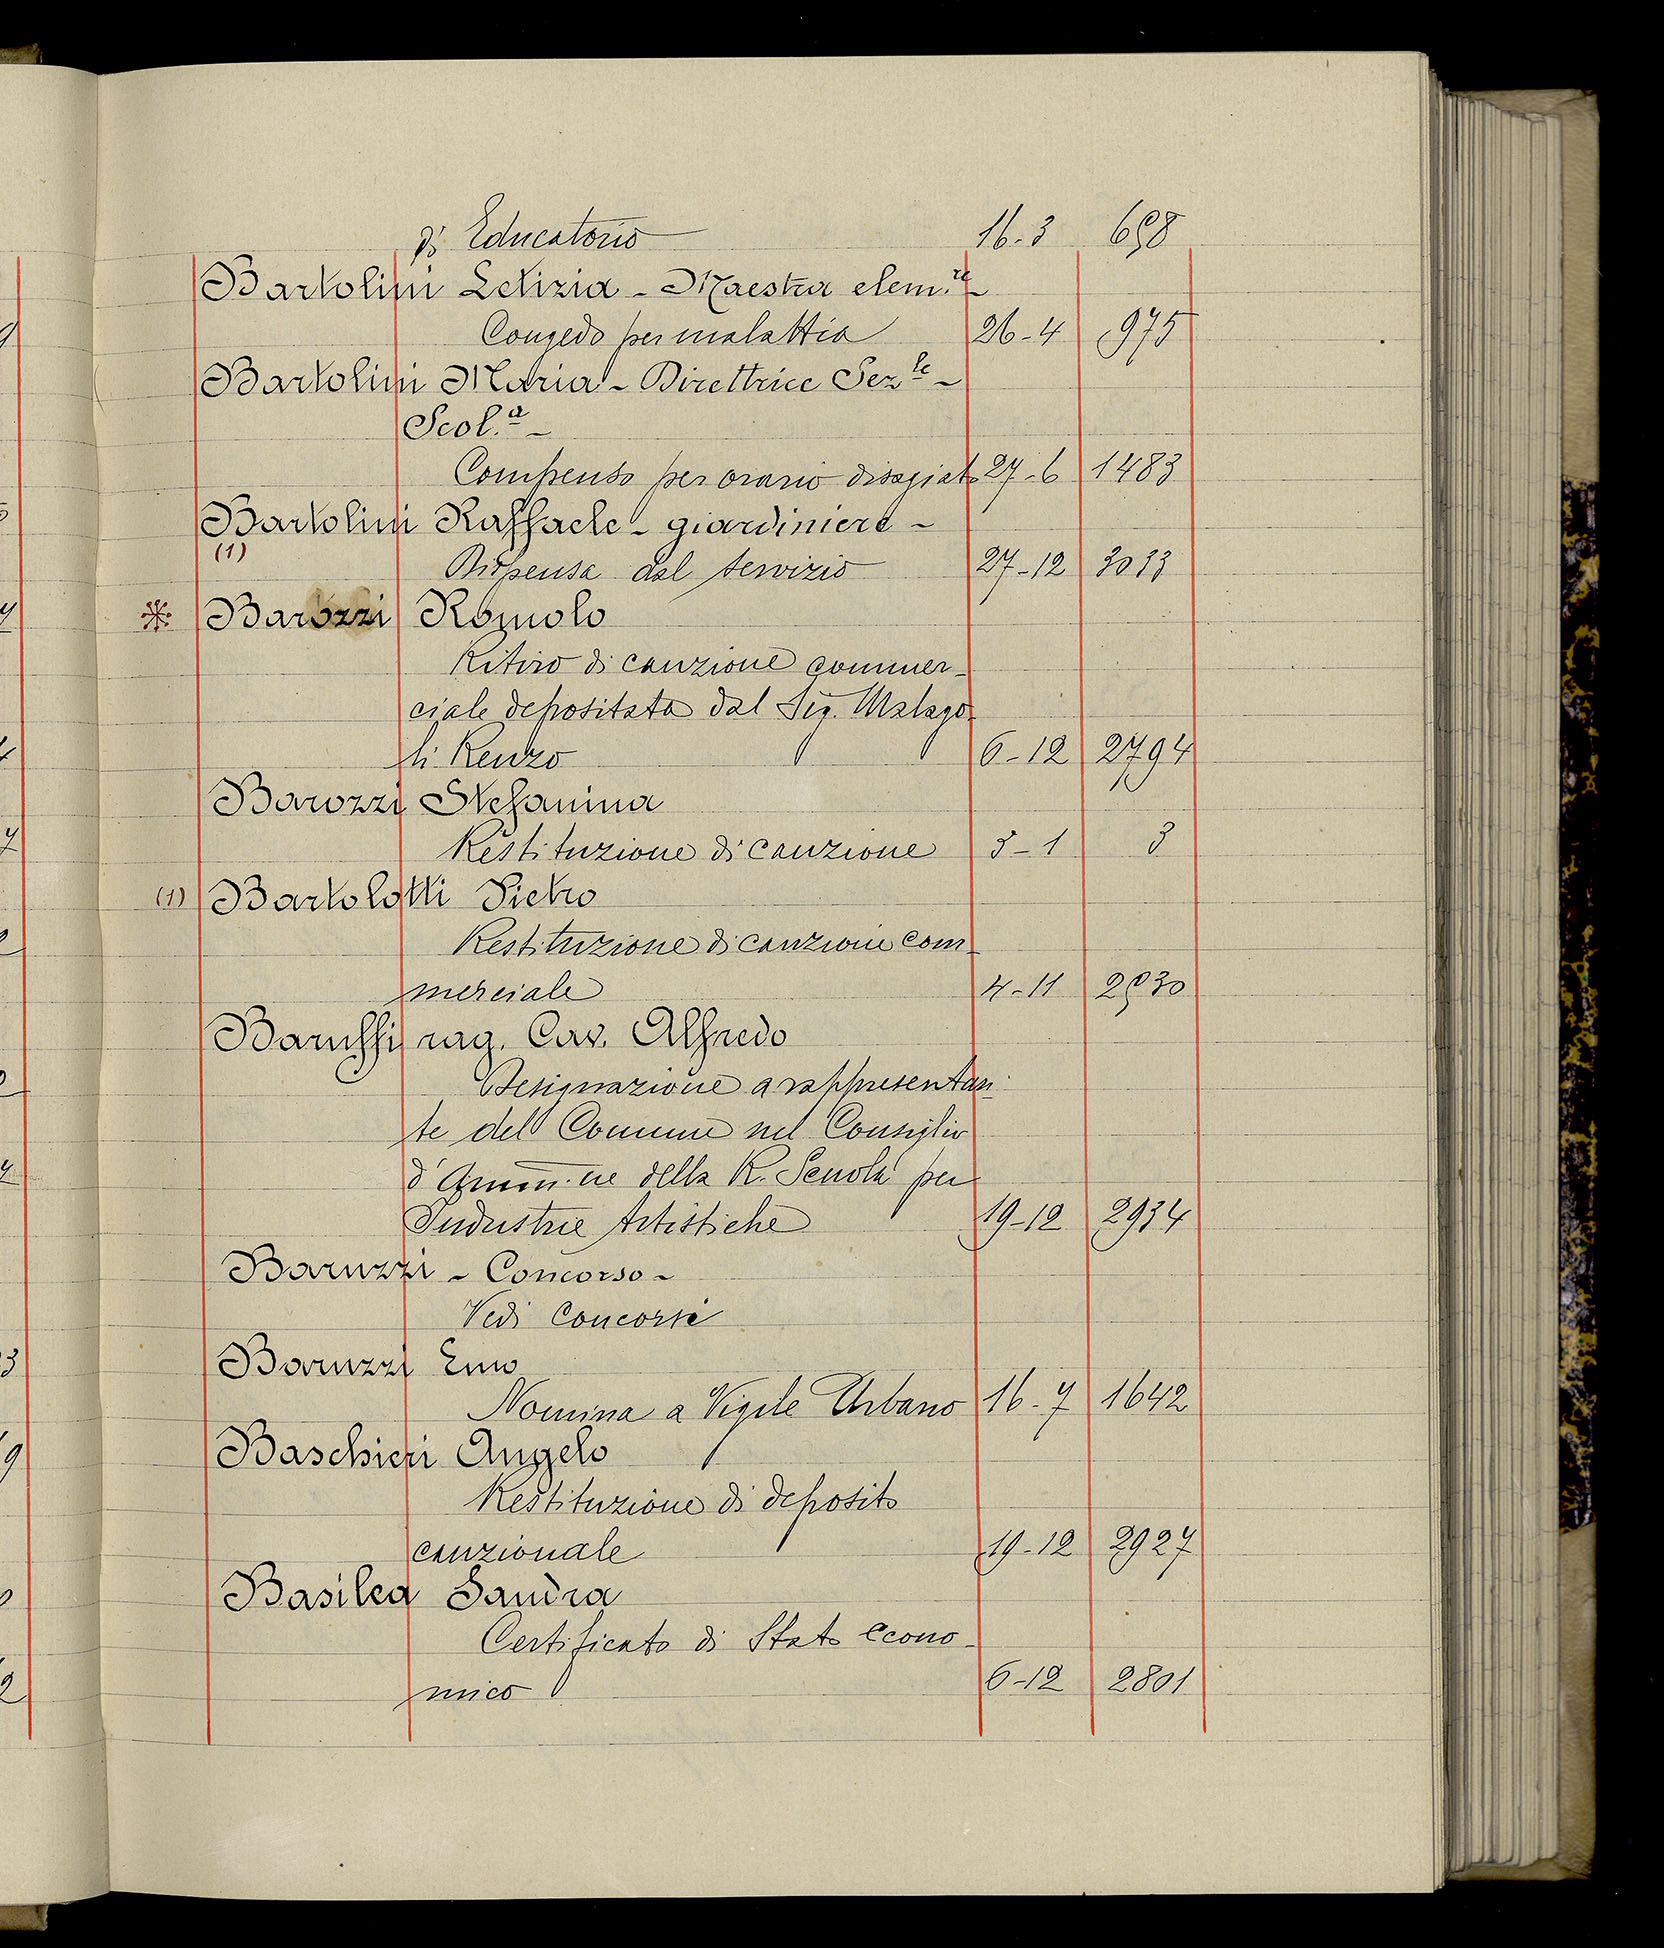 di Educatorio 16-3 658
Bartolini Letizia - Maestra elem.re -
Congedo per malattia 26-4 975
Bartolini Maria - Direttrice Sez.le -
Scol.a -
Compenso per orario disagiato 27-6 1483
Bartolini Raffaele - giardiniere -
(1) Dispensa dal servizio 27-12 3033
* Barozzi Romolo
Ritiro di cauzione commer-
ciale depositata dal Sig. Malago-
li Renzo 6-12 2794
Barozzi Stefanina
Restituzione di cauzione 3-1 3
(1) Bartolotti Pietro
Restituzione di cauzione com-
merciale 4-11 2530
Baruffi rag. Cav. Alfredo
Designazione a rappresentan-
te del Comune nel Consiglio
d'Amm.ne della R. Scuola per
Industrie Artistiche 19-12 2934
Baruzzi - Concorso -
Vedi Concorsi
Baruzzi Enio
Nomina a Vigile Urbano 16-7 1642
Baschieri Angelo
Restituzione di deposito
cauzionale 19-12 2927
Basilea Sandra
Certificato di Stato econo-
mico 6-12 2801